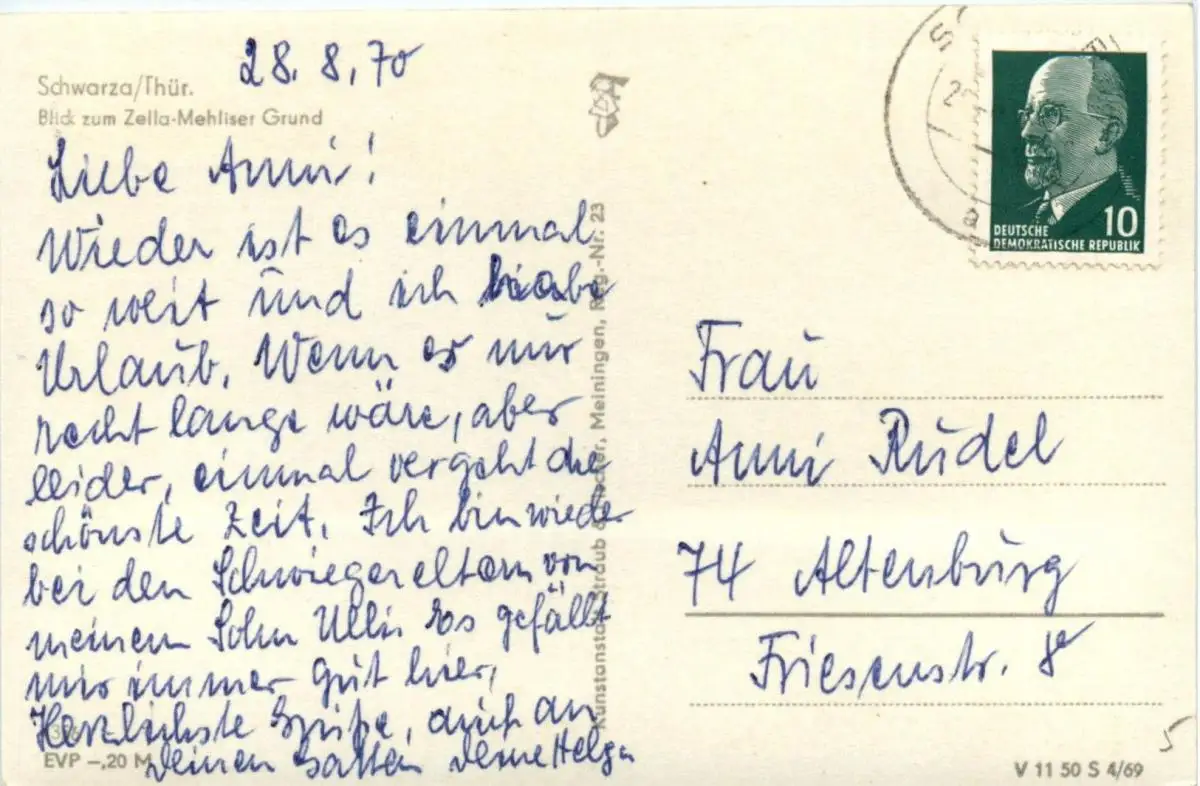 28. 8. 70
Schwarza/Thür.
Blick zum Zella-Mehliser Grund
Liebe Anni!
Wieder ist es einmal
so weit und ich habe
Urlaub. Wenn es nur
recht lange wäre, aber
leider, einmal vergeht die
schönste Zeit. Ich bin wieder
bei den Schwiegereltern von
meinem Sohn Ulli. Es gefällt
mir immer gut hier.
Herzlichste Grüße, auch an
Deinen Gatten Deine Helga
EVP -,20 M
Kunstanstalt Straub & Fischer, Meiningen, Reg.-Nr. 23
10
DEUTSCHE
DEMOKRATISCHE REPUBLIK
Frau
Anni Rudel
74 Altenburg
Friesenstr. 8
V 11 50 S 4/69
5